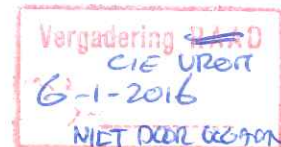 Vergadering RAAD
CIE VROM
6-1-2016
NIET DOOR GEGAAN